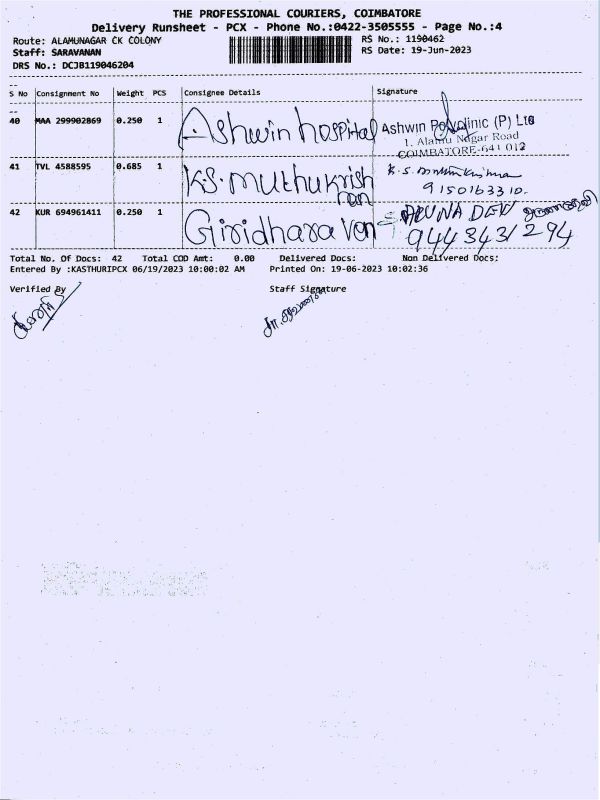 THE PROFESSIONAL COURIERS, COIMBATORE
Delivery Runsheet - PCX - Phone No.:0422-3505555 - Page No.:4
Route: ALAMUNAGAR CK COLONY RS No.: 1190462
Staff: SARAVANAN RS Date: 19-Jun-2023
DRS No.: DCJB119046204
S No Consignment No Weight PCS Consignee Details Signature
40 MAA 299902869 0.250 1 Ashwin hospital Ashwin Polyclinic (P) Ltd
1. Alamu Nagar Road
COIMBATORE-641 012
41 TVL 4588595 0.685 1 K.S. Muthukrish
nan
K.S. Muthukrishna
9150163310.
42 KUR 694961411 0.250 1 Giridhara Van S. ARUNA DEVI
9443431294
Total No. Of Docs: 42 Total COD Amt: 0.00 Delivered Docs: Non Delivered Docs:
Entered By :KASTHURIPCX 06/19/2023 10:00:02 AM Printed On: 19-06-2023 10:02:36
Verified By Staff Signature